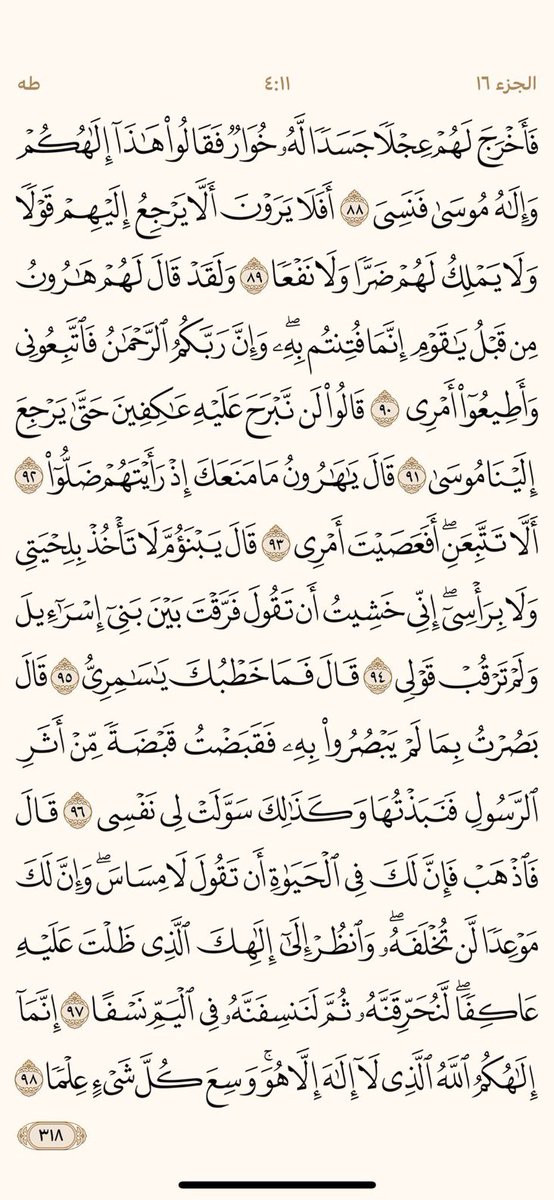 الجزء ١٦ ٤:١١ طه
فَأَخْرَجَ لَهُمْ عِجْلًا جَسَدًا لَّهُۥ خُوَارٌ فَقَالُوا۟ هَٰذَآ إِلَٰهُكُمْ
وَإِلَٰهُ مُوسَىٰ فَنَسِىَ ٨٨ أَفَلَا يَرَوْنَ أَلَّا يَرْجِعُ إِلَيْهِمْ قَوْلًا
وَلَا يَمْلِكُ لَهُمْ ضَرًّا وَلَا نَفْعًا ٨٩ وَلَقَدْ قَالَ لَهُمْ هَٰرُونُ
مِن قَبْلُ يَٰقَوْمِ إِنَّمَا فُتِنتُم بِهِۦۖ وَإِنَّ رَبَّكُمُ ٱلرَّحْمَٰنُ فَٱتَّبِعُونِى
وَأَطِيعُوٓا۟ أَمْرِى ٩٠ قَالُوا۟ لَن نَّبْرَحَ عَلَيْهِ عَٰكِفِينَ حَتَّىٰ يَرْجِعَ
إِلَيْنَا مُوسَىٰ ٩١ قَالَ يَٰهَٰرُونُ مَا مَنَعَكَ إِذْ رَأَيْتَهُمْ ضَلُّوٓا۟ ٩٢
أَلَّا تَتَّبِعَنِۖ أَفَعَصَيْتَ أَمْرِى ٩٣ قَالَ يَبْنَؤُمَّ لَا تَأْخُذْ بِلِحْيَتِى
وَلَا بِرَأْسِىٓۖ إِنِّى خَشِيتُ أَن تَقُولَ فَرَّقْتَ بَيْنَ بَنِىٓ إِسْرَٰٓءِيلَ
وَلَمْ تَرْقُبْ قَوْلِى ٩٤ قَالَ فَمَا خَطْبُكَ يَٰسَٰمِرِىُّ ٩٥ قَالَ
بَصُرْتُ بِمَا لَمْ يَبْصُرُوا۟ بِهِۦ فَقَبَضْتُ قَبْضَةً مِّنْ أَثَرِ
ٱلرَّسُولِ فَنَبَذْتُهَا وَكَذَٰلِكَ سَوَّلَتْ لِى نَفْسِى ٩٦ قَالَ
فَٱذْهَبْ فَإِنَّ لَكَ فِى ٱلْحَيَوٰةِ أَن تَقُولَ لَا مِسَاسَۖ وَإِنَّ لَكَ
مَوْعِدًا لَّن تُخْلَفَهُۥۖ وَٱنظُرْ إِلَىٰٓ إِلَٰهِكَ ٱلَّذِى ظَلْتَ عَلَيْهِ
عَاكِفًاۖ لَّنُحَرِّقَنَّهُۥ ثُمَّ لَنَنسِفَنَّهُۥ فِى ٱلْيَمِّ نَسْفًا ٩٧ إِنَّمَآ
إِلَٰهُكُمُ ٱللَّهُ ٱلَّذِى لَآ إِلَٰهَ إِلَّا هُوَۚ وَسِعَ كُلَّ شَىْءٍ عِلْمًا ٩٨
٣١٨